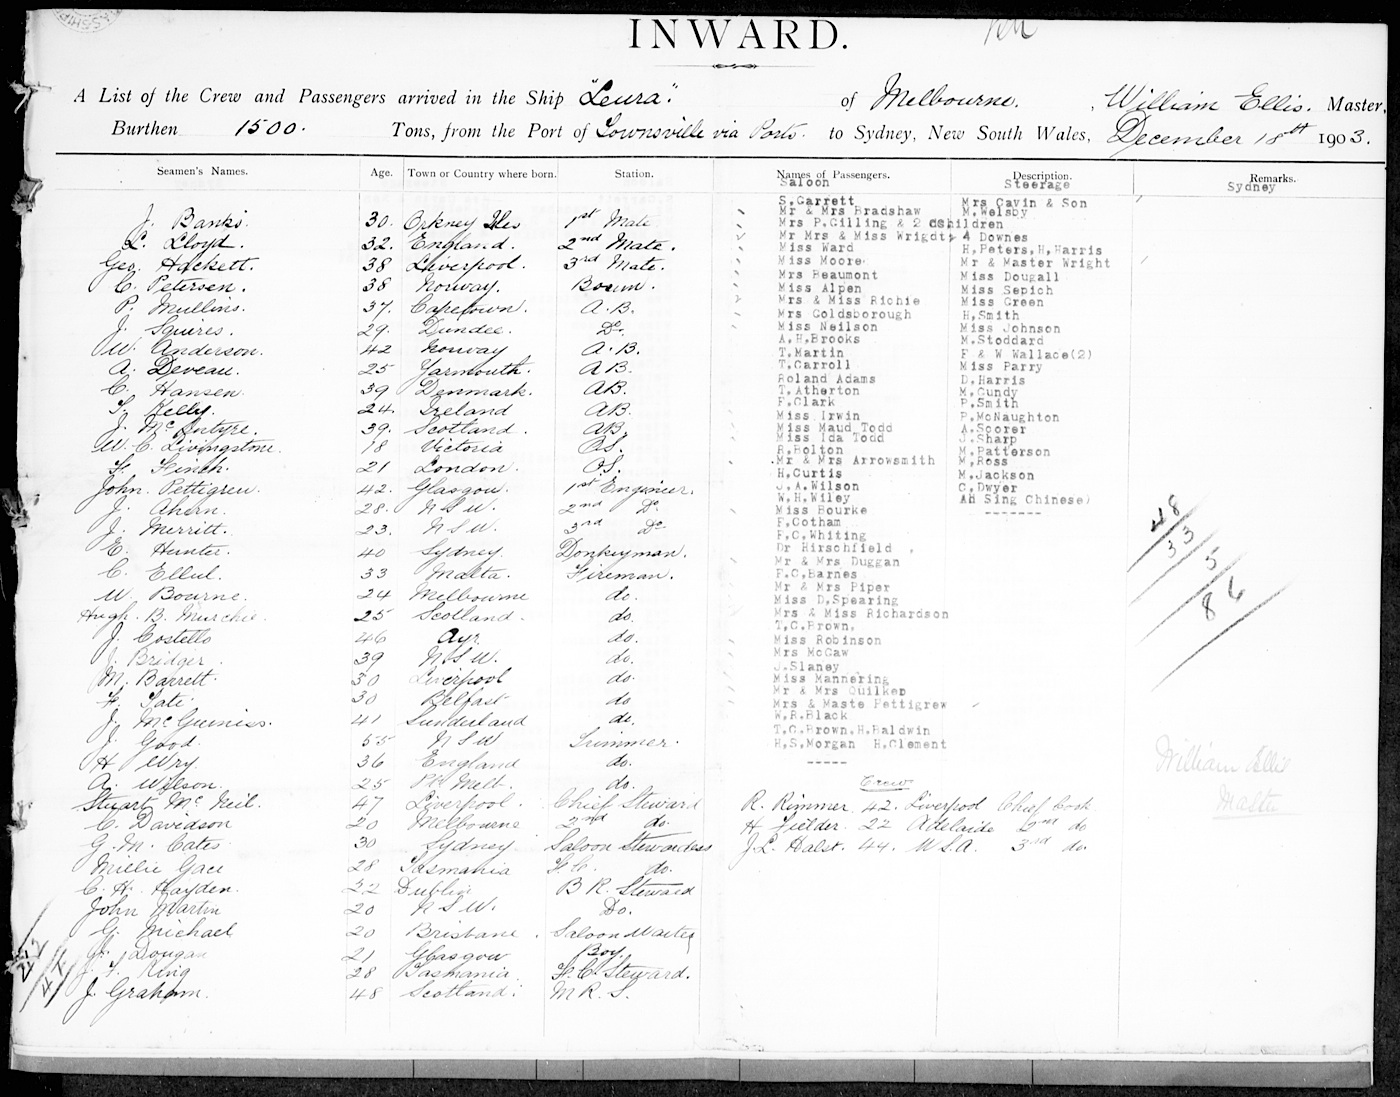 INWARD.
A List of the Crew and Passengers arrived in the Ship "Leura". of Melbourne. , William Ellis. Master,
Burthen 1500. Tons, from the Port of Townsville via Ports. to Sydney, New South Wales, December 18th 1903.
Seamen's Names. Age. Town or Country where born. Station.
J. Banks. 30. Orkney Iles 1st Mate
L. Lloyd. 32. England. 2nd Mate.
Geo. Hackett. 38 Liverpool. 3rd Mate.
C. Petersen. 38 Norway. Bosun.
P. Mullins. 37. Capetown. A.B.
J. Squires. 29. Dundee. Do.
W. Anderson. 42 Norway A.B.
A. Deveau. 25 Yarmouth. AB.
C. Hansen 39 Denmark. AB.
T. Kelly. 24. Ireland AB.
J. McIntyre. 39. Scotland. AB.
W. C. Livingstone. 18 Victoria OS.
F. Finch. 21 London. OS.
John. Pettigrew. 42. Glasgow. 1st Engineer.
J. Ahern. 28. N S W. 2nd Do
J. Merritt. 23. N S W. 3rd Do
E. Hunter. 40 Sydney Donkeyman.
C. Ellul. 33 Malta. Fireman.
W. Bourne. 24 Melbourne do.
Hugh. B. Murchie. 25 Scotland. do.
J. Costello 46 Ayr do.
J. Bridger 39 N S W. do.
M. Barrett. 30 Liverpool do.
F. Tate 30 Belfast do
J. McGuiniss. 41 Sunderland do.
J. Good. 55 N S W Trimmer.
H Wry. 36 England do.
A. Wilson. 25 Pt Melb. do.
Stuart McNeil. 47 Liverpool. Chief Steward
C. Davidson 20 Melbourne 2nd do.
G. M. Cates 30 Sydney Saloon Stewardess
Millie Gace 28 Tasmania F.C. do.
C. H. Hayden. 22 Dublin B R. Steward
John Martin 20 N S W. Do.
G. Michael 20 Brisbane. Saloon Waiter
Dougan 21 Glasgow Boy.
J. F. King 28 Tasmania. F. C. Steward.
J. Graham. 48 Scotland. M R. S.
42
Names of Passengers. Description. Remarks.
Saloon Steerage Sydney
S.Garrett Mrs Cavin & Son
Mr & Mrs Bradshaw M.Welsby
Mrs P.Gilling & 2 Children
Mr Mrs & Miss Wright, 4 Downes
Miss Ward H.Peters,H.Harris
Miss Moore Mr & Master Wright
Mrs Beaumont Miss Dougall
Miss Alpen Miss Sepich
Mrs & Miss Richie Miss Green
Mrs Goldsborough H,Smith
Miss Neilson Miss Johnson
A.H.Brooks M.Stoddard
T.Martin F & W Wallace(2)
T.Carroll Miss Parry
Roland Adams D.Harris
T.Atherton M.Gundy
F.Clark P.Smith
Miss Irwin P.McNaughton
Miss Maud Todd A.Scorer
Miss Ida Todd J.Sharp
R.Holton M.Patterson
Mr & Mrs Arrowsmith M.Ross
H.Curtis M.Jackson
J.A.Wilson C.Dwyer
W.H.Wiley Ah Sing Chinese)
Miss Bourke -------
F.Gotham
F,C,Whiting
Dr Hirschfield ,
Mr & Mrs Duggan
F.C,Barnes
Mr & Mrs Piper
Miss D.Spearing
Mrs & Miss Richardson
T.C.Brown,
Miss Robinson
Mrs McGaw
J.Slaney
Miss Mannering
Mr & Mrs Quilken
Mrs & Maste Pettigrew
W.R.Black
T.C.Brown.H.Baldwin
H,S,Morgan H,Clement
-----
48
33
5
86
William Ellis
Master
Crew
R. Rimmer 42. Liverpool Chief Cook
H Fielder. 22 Adelaide 2nd do
J.L. Halst. 44. U S A. 3rd do.